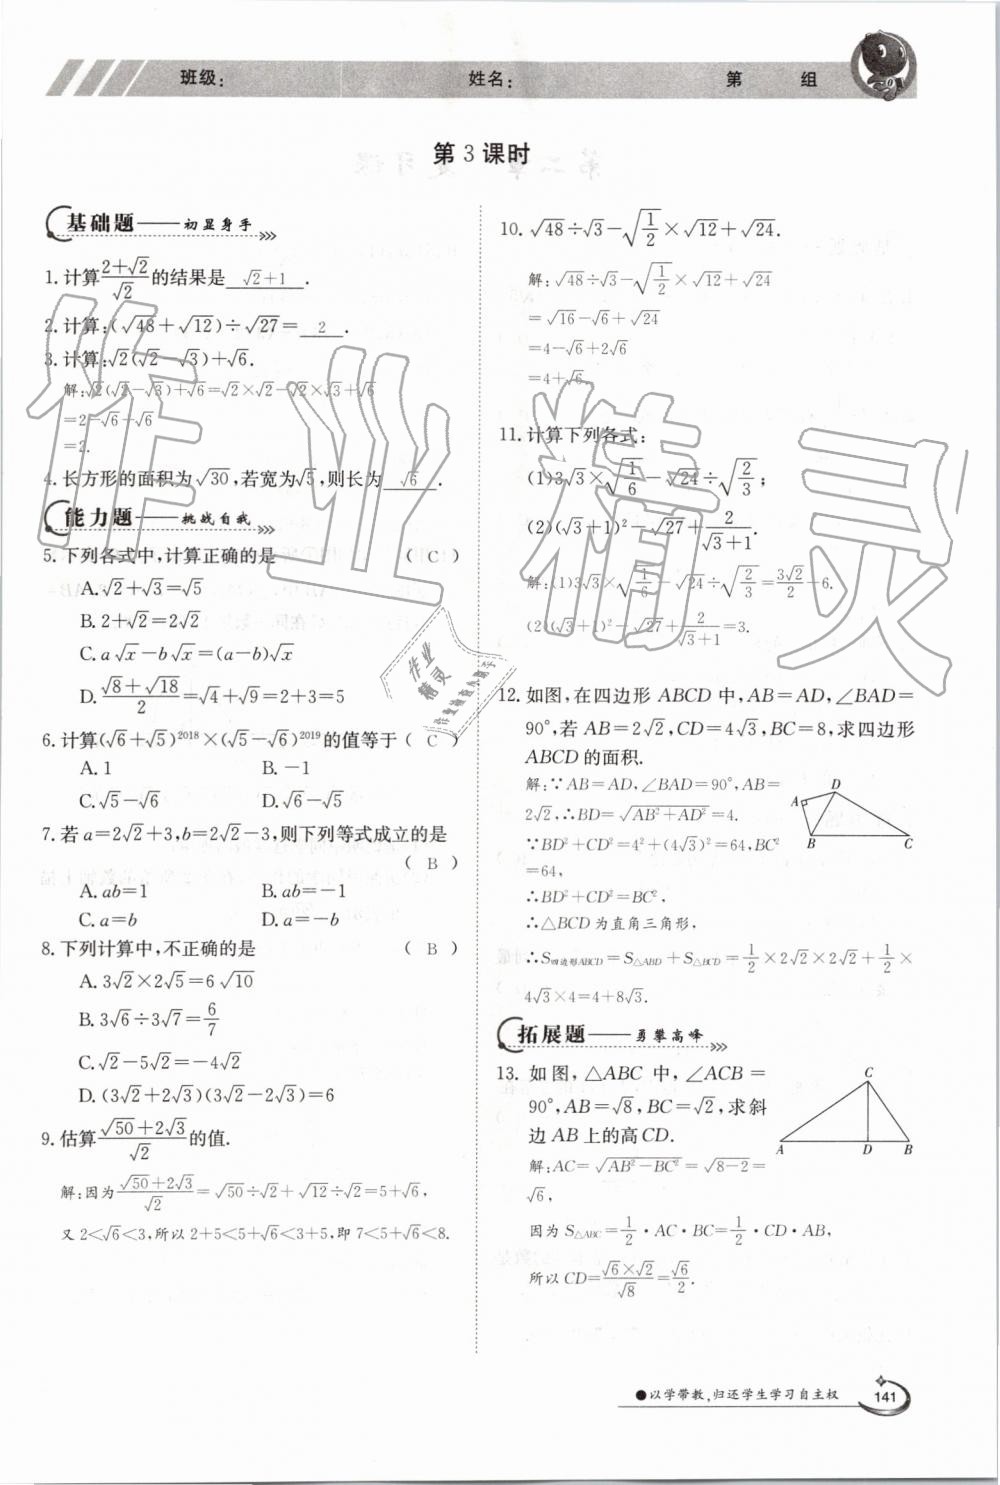 班级：　姓名：　第　组
第 3 课时
基础题——初显身手
1. 计算(2+√2)/√2的结果是 √2+1 .
2. 计算:(√48+√12)÷√27= 2 .
3. 计算:√2(√2-√3)+√6.
解:√2(√2-√3)+√6=√2×√2-√2×√3+√6
=2-√6+√6
=2.
4. 长方形的面积为√30,若宽为√5,则长为 √6 .
能力题——挑战自我
5. 下列各式中,计算正确的是 ( C )
A.√2+√3=√5
B. 2+√2=2√2
C. a√x-b√x=(a-b)√x
D. (√8+√18)/2=√4+√9=2+3=5
6. 计算(√6+√5)²⁰¹⁸×(√5-√6)²⁰¹⁹的值等于 ( C )
A. 1　B. -1
C.√5-√6　D.√6-√5
7. 若 a=2√2+3,b=2√2-3,则下列等式成立的是
( B )
A. ab=1　B. ab=-1
C. a=b　D. a=-b
8. 下列计算中,不正确的是 ( B )
A. 3√2×2√5=6√10
B. 3√6÷3√7=6/7
C.√2-5√2=-4√2
D. (3√2+2√3)(3√2-2√3)=6
9. 估算(√50+2√3)/√2的值.
解:因为(√50+2√3)/√2=√50÷√2+√12÷√2=5+√6,
又 2<√6<3,所以 2+5<5+√6<3+5,即 7<5+√6<8.
10. √48÷√3-√(1/2)×√12+√24.
解:√48÷√3-√(1/2)×√12+√24
=√16-√6+√24
=4-√6+2√6
=4+√6.
11. 计算下列各式:
(1)3√3×√(1/6)-√24÷√(2/3);
(2)(√3+1)²-√27+2/(√3+1).
解:(1)3√3×√(1/6)-√24÷√(2/3)=3√2/2-6.
(2)(√3+1)²-√27+2/(√3+1)=3.
12. 如图,在四边形 ABCD 中,AB=AD,∠BAD=
90°,若 AB=2√2,CD=4√3,BC=8,求四边形
ABCD 的面积.
解:∵AB=AD,∠BAD=90°,AB=
2√2,∴BD=√(AB²+AD²)=4.
∵BD²+CD²=4²+(4√3)²=64,BC²
=64,
∴BD²+CD²=BC²,
∴△BCD 为直角三角形,
∴S四边形ABCD=S△ABD+S△BCD=1/2×2√2×2√2+1/2×
4√3×4=4+8√3.
A D B C
拓展题——勇攀高峰
13. 如图,△ABC 中,∠ACB=
90°,AB=√8,BC=√2,求斜
边 AB 上的高CD.
C A D B
解:AC=√(AB²-BC²)=√(8-2)=
√6,
因为 S△ABC=1/2·AC·BC=1/2·CD·AB,
所以 CD=(√6×√2)/√8=√6/2.
作业精灵
作业精灵
●以学带教,归还学生学习自主权
141